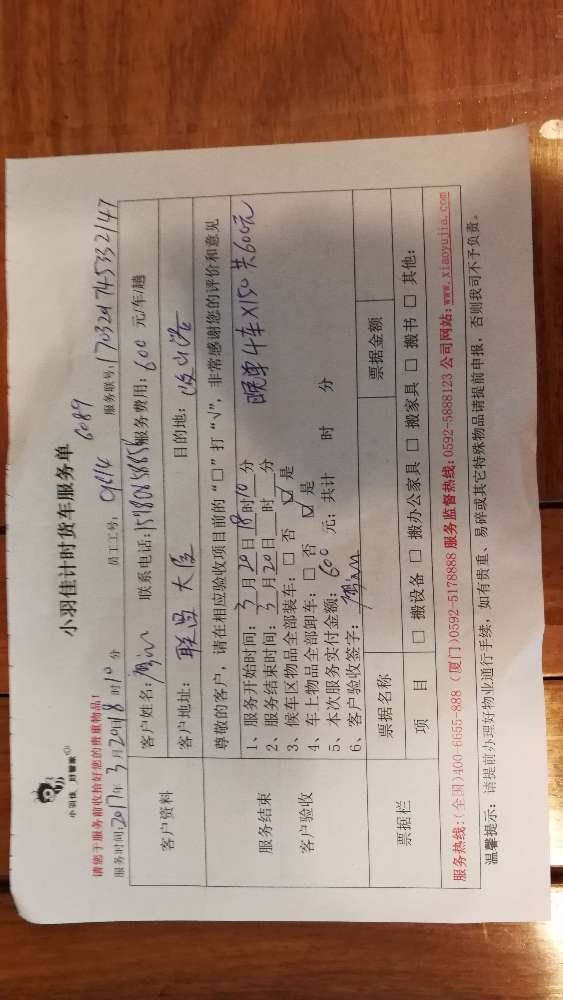 小羽佳 好管家
小羽佳计时货车服务单
请您于服务前收拾好您的贵重物品!
服务时间:2017年3月20日18时10分 员工工号: 0614 6089 服务联号:17032074533 2147
客户资料
客户姓名: 联系电话:15180858856 服务费用:600 元/车/趟
客户地址: 联昌大厦 目的地:
服务结束
客户验收
尊敬的客户，请在相应验收项目前的“□”打“√”，非常感谢您的评价和意见
1、服务开始时间:3月20日18时10分 晚单4车X150共600元
2、服务结束时间:3月20日 时 分
3、候车区物品全部装车:□ 否 ☑ 是
4、车上物品全部卸车:□ 否 ☑ 是
5、本次服务实付金额:600 元; 共计 时 分
6、客户验收签字:
票据栏
票据名称 票据金额
项 目 □ 搬设备 □ 搬办公家具 □ 搬家具 □ 搬书 □ 其他:
服务热线:(全国)400-6655-888 (厦门)0592-5178888 服务监督热线:0592-5888123 公司网站:www.xiaoyujia.com
温馨提示: 请提前办理好物业通行手续，如有贵重、易碎或其它特殊物品请提前申报，否则我司不予负责。